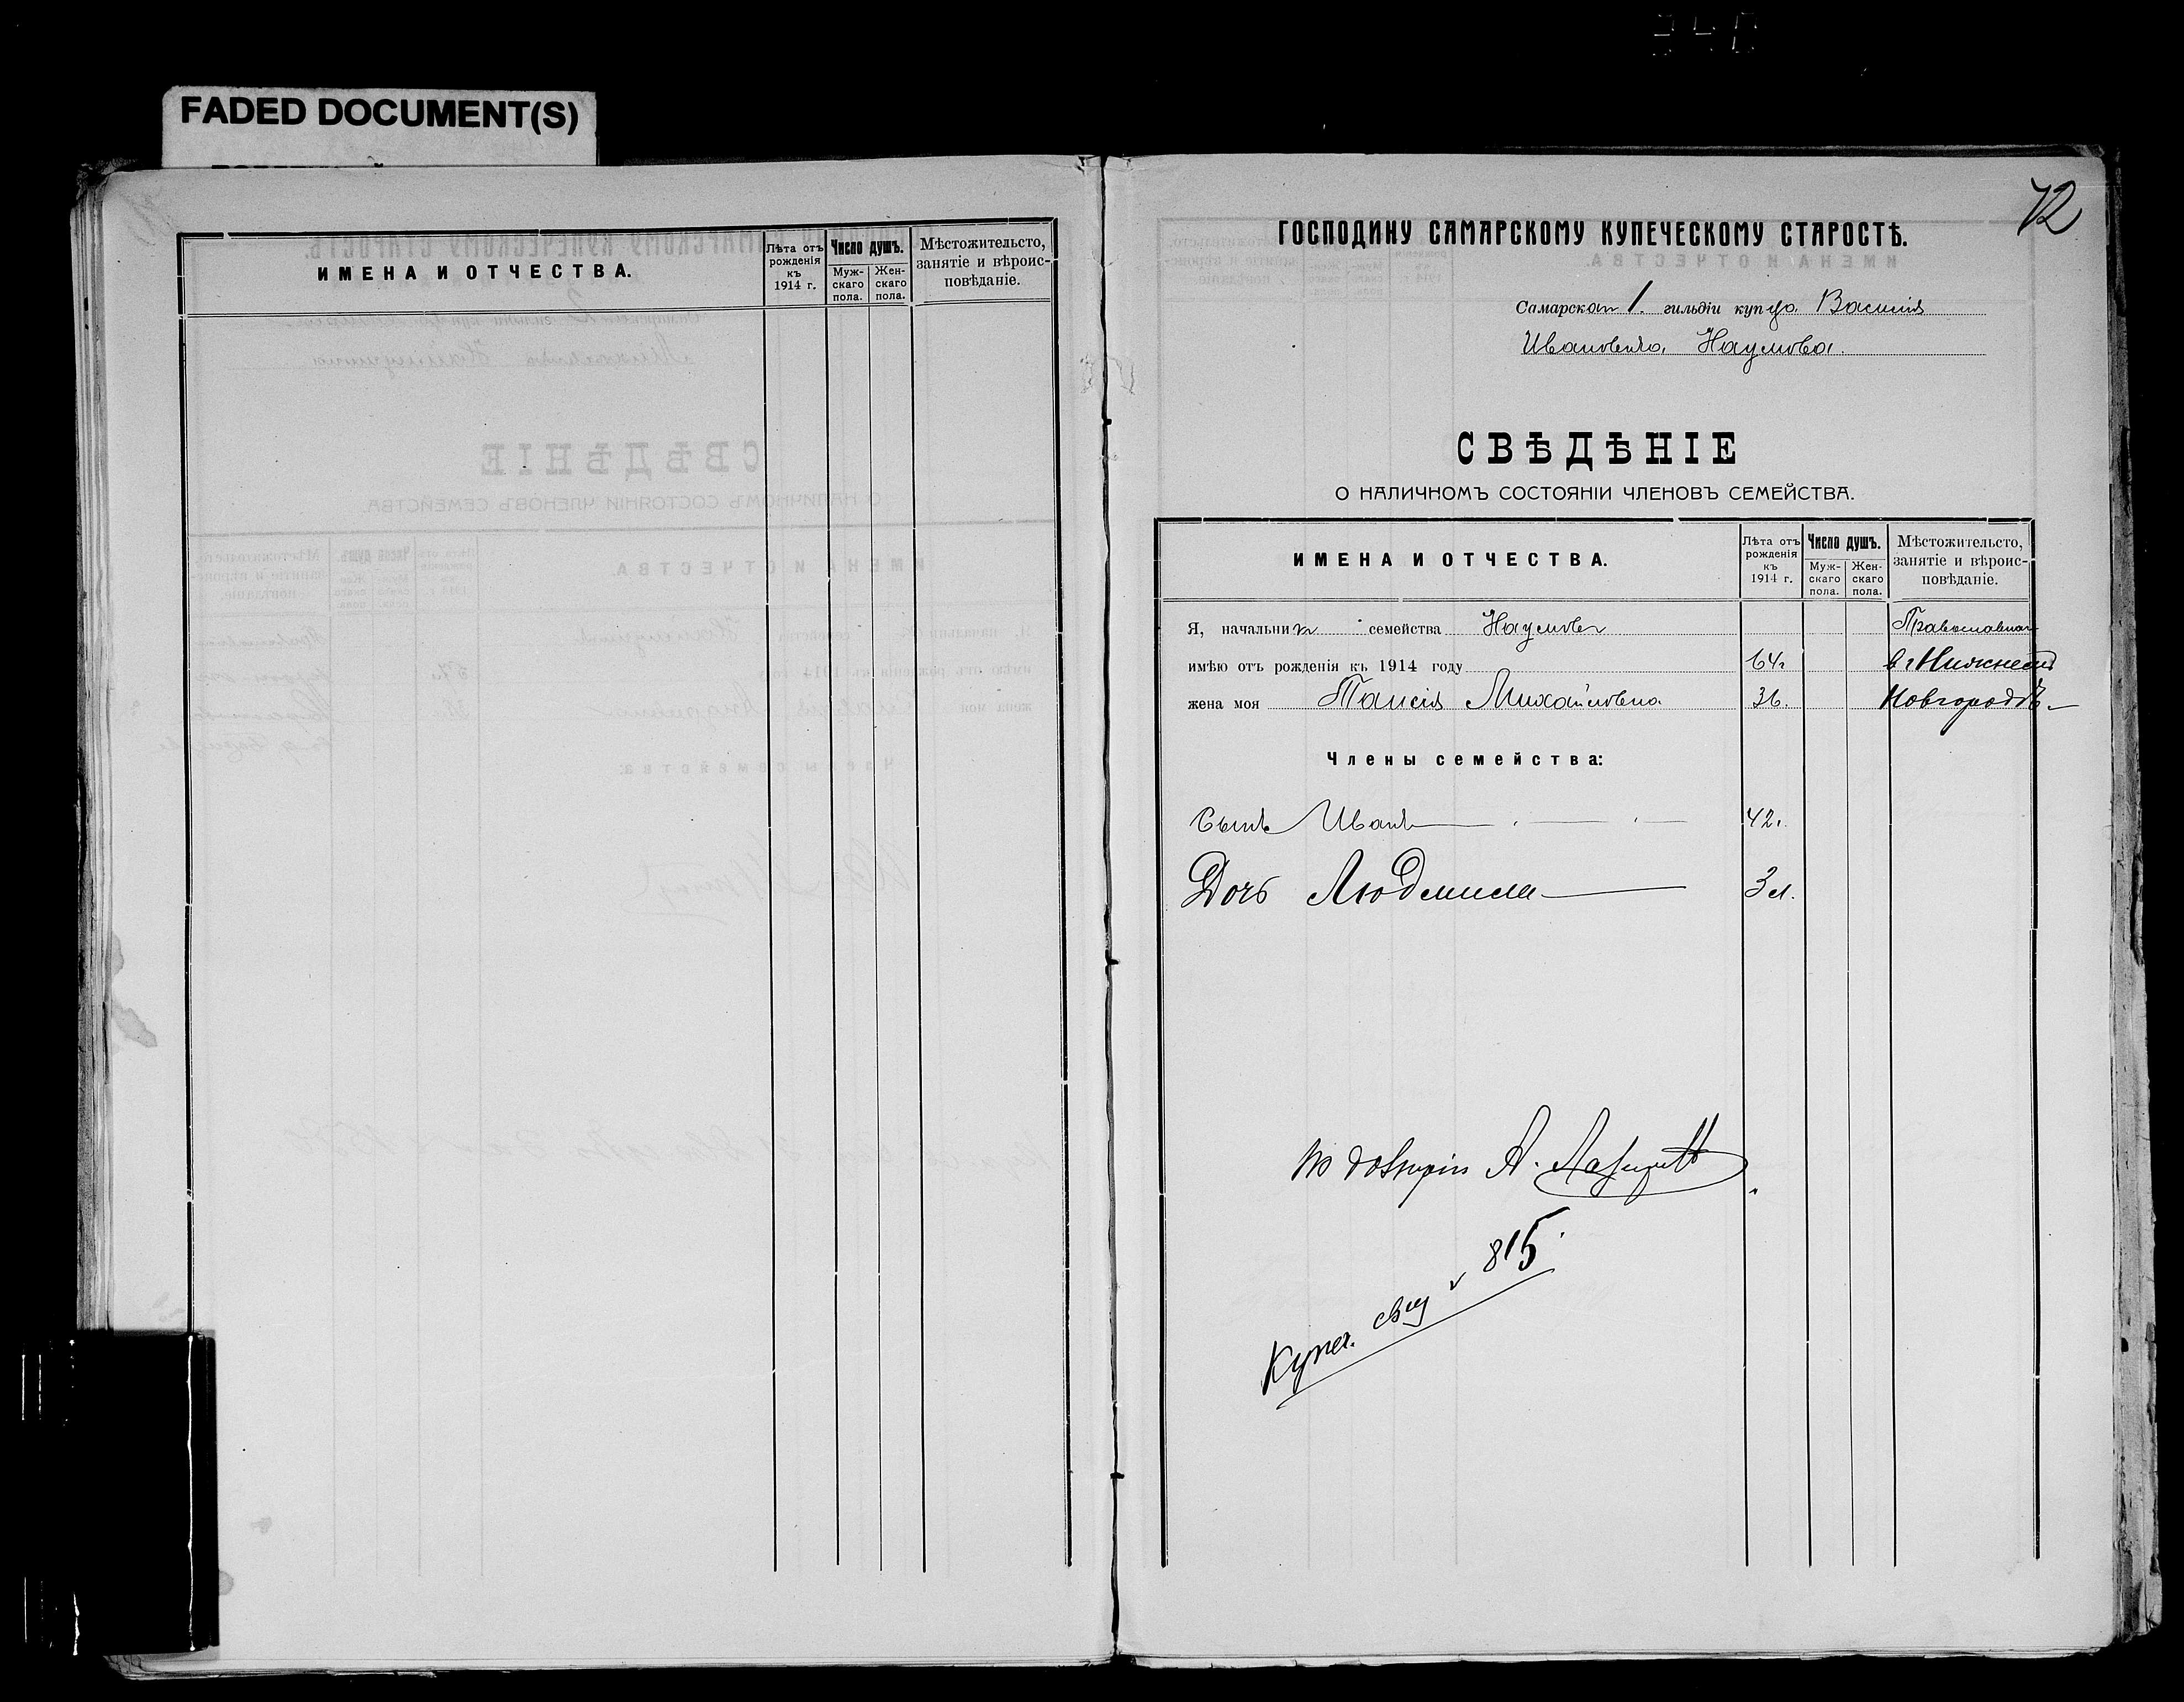 FADED DOCUMENT(S)
ИМЕНА И ОТЧЕСТВА.
Лѣта отъ рожденія къ 1914 г.
Число душъ.
Муж-скаго пола.
Жен-скаго пола.
Мѣстожительсто, занятіе и вѣроис-повѣданіе.
72
ГОСПОДИНУ САМАРСКОМУ КУПЕЧЕСКОМУ СТАРОСТѢ.
Самарскаго 1. гильдіи купца Василія
Ивановича Наумова.
СВѢДѢНІЕ
О НАЛИЧНОМЪ СОСТОЯНІИ ЧЛЕНОВЪ СЕМЕЙСТВА.
ИМЕНА И ОТЧЕСТВА.
Лѣта отъ рожденія къ 1914 г.
Число душъ.
Муж-скаго пола.
Жен-скаго пола.
Мѣстожительсто, занятіе и вѣроис-повѣданіе.
Я, начальник семейства Наумов Православнаг
имѣю отъ рожденія къ 1914 году 64г в г Нижнемъ
жена моя Таисія Михайловна 36. Новгородѣ.
Члены семейства:
Сынъ Иванъ 42г.
Дочь Людмила 3 л.
по довѣрію А.
Купеч. свид 815.